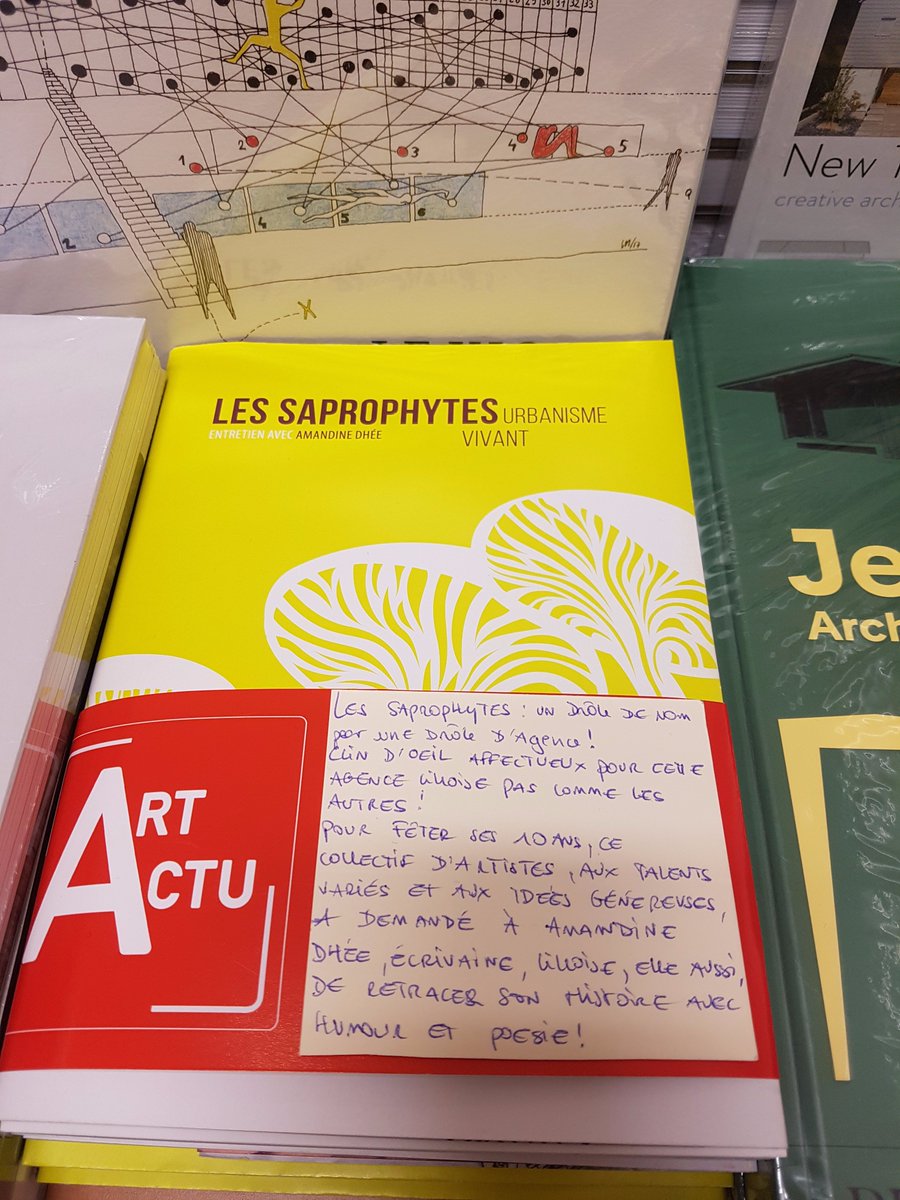 28 29 30 31 32 33
1 2 3 4 5
2 4 5 6
X
New
creative arch
LES SAPROPHYTES URBANISME
ENTRETIEN AVEC AMANDINE DHÉE VIVANT
Je
Arch
ART
ACTU
LES SAPROPHYTES : UN DRÔLE DE NOM
POUR UNE DRÔLE D'AGENCE !
CLIN D'OEIL AFFECTUEUX POUR CETTE
AGENCE LILLOISE PAS COMME LES
AUTRES !
POUR FÊTER SES 10 ANS, CE
COLLECTIF D'ARTISTES, AUX TALENTS
VARIÉS ET AUX IDÉES GÉNÉREUSES,
A DEMANDÉ À AMANDINE
DHÉE, ÉCRIVAINE, LILLOISE, ELLE AUSSI,
DE RETRACER SON HISTOIRE AVEC
HUMOUR ET POESIE !